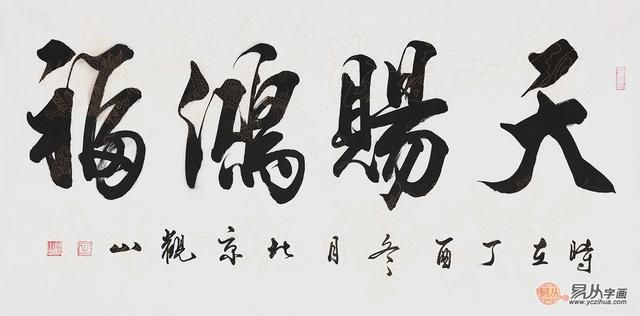 天賜鴻福
時在丁酉冬月北京觀山
易从字画
www.yczihua.com